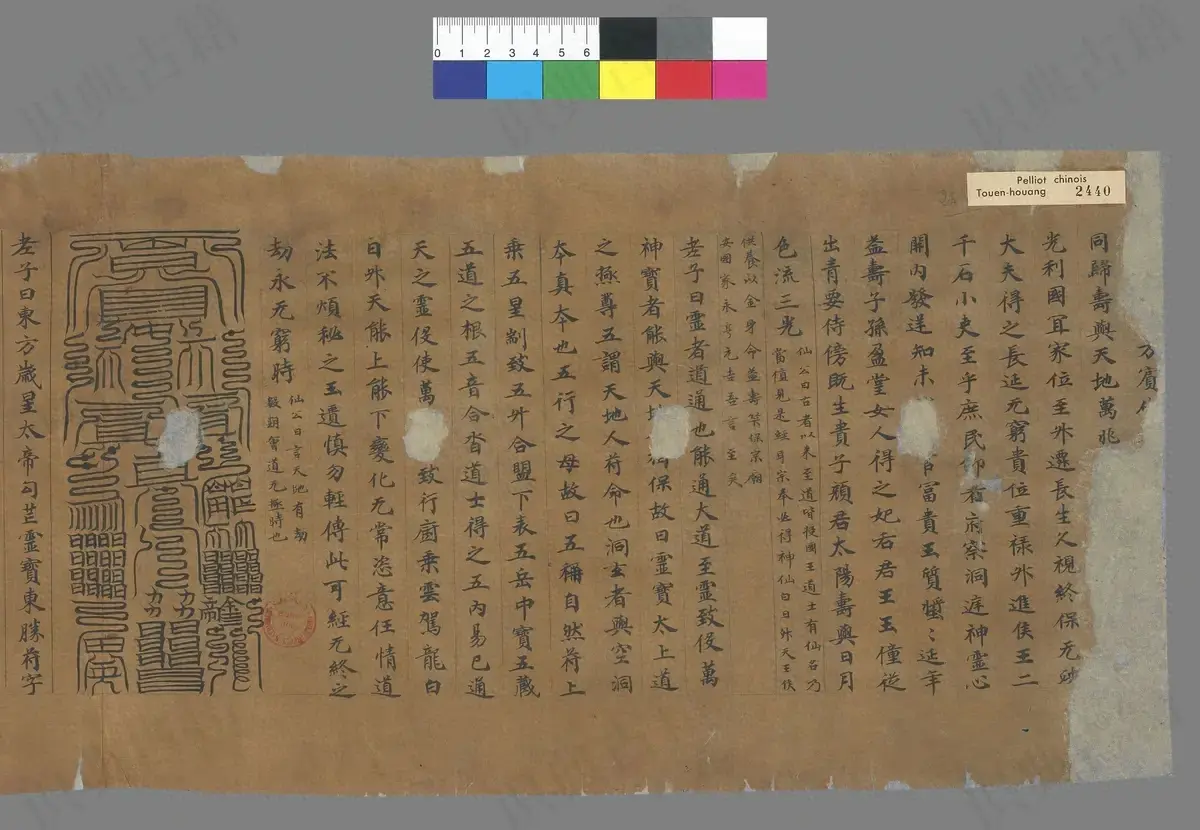 Pelliot chinois
Touen-houang 2440
0 1 2 3 4 5 6
万賓
同歸壽與天地萬兆
光利國冝家位至外遷長生久視終保元
大夫得之長延无窮貴位重禄外進侯王二
千石小吏至乎庶民 府察洞庭神靈心
開内發逆知未 官冨貴玉質 ミ延年
益壽子孫盈堂女人得之妃右君王玉僮従
出青要侍傍既生貴子頋君太陽壽與日月
色流三光
仙公曰古者以来至道時授國王道士有仙名乃
當值見是経耳宗奉必得神仙白日外天王侯
供養以金身命益壽禁保宗廟
安國家永享元吉吾言至矣
老子曰靈者道通也能通大道至靈致役萬
神寶者能與天 保故曰靈寶太上道
之無尊五謂天地人苻命也洞玄者與空洞
夲真夲也五行之母故曰五稱自然苻上
乗五星 致五外合盟下表五岳中寶五藏
五道之根五音合沓道士得之五内易已通
天之靈役使萬 致行廚乗雲駕龍白
日外天能上能下變化无常恣意任情道
法不煩秘之玉遺慎勿輕傳此可經元終之
劫永无窮時
仙公曰言天地有劫
數期會道无極時也
老子曰東方歳星太帝勾芒靈寶東勝苻字